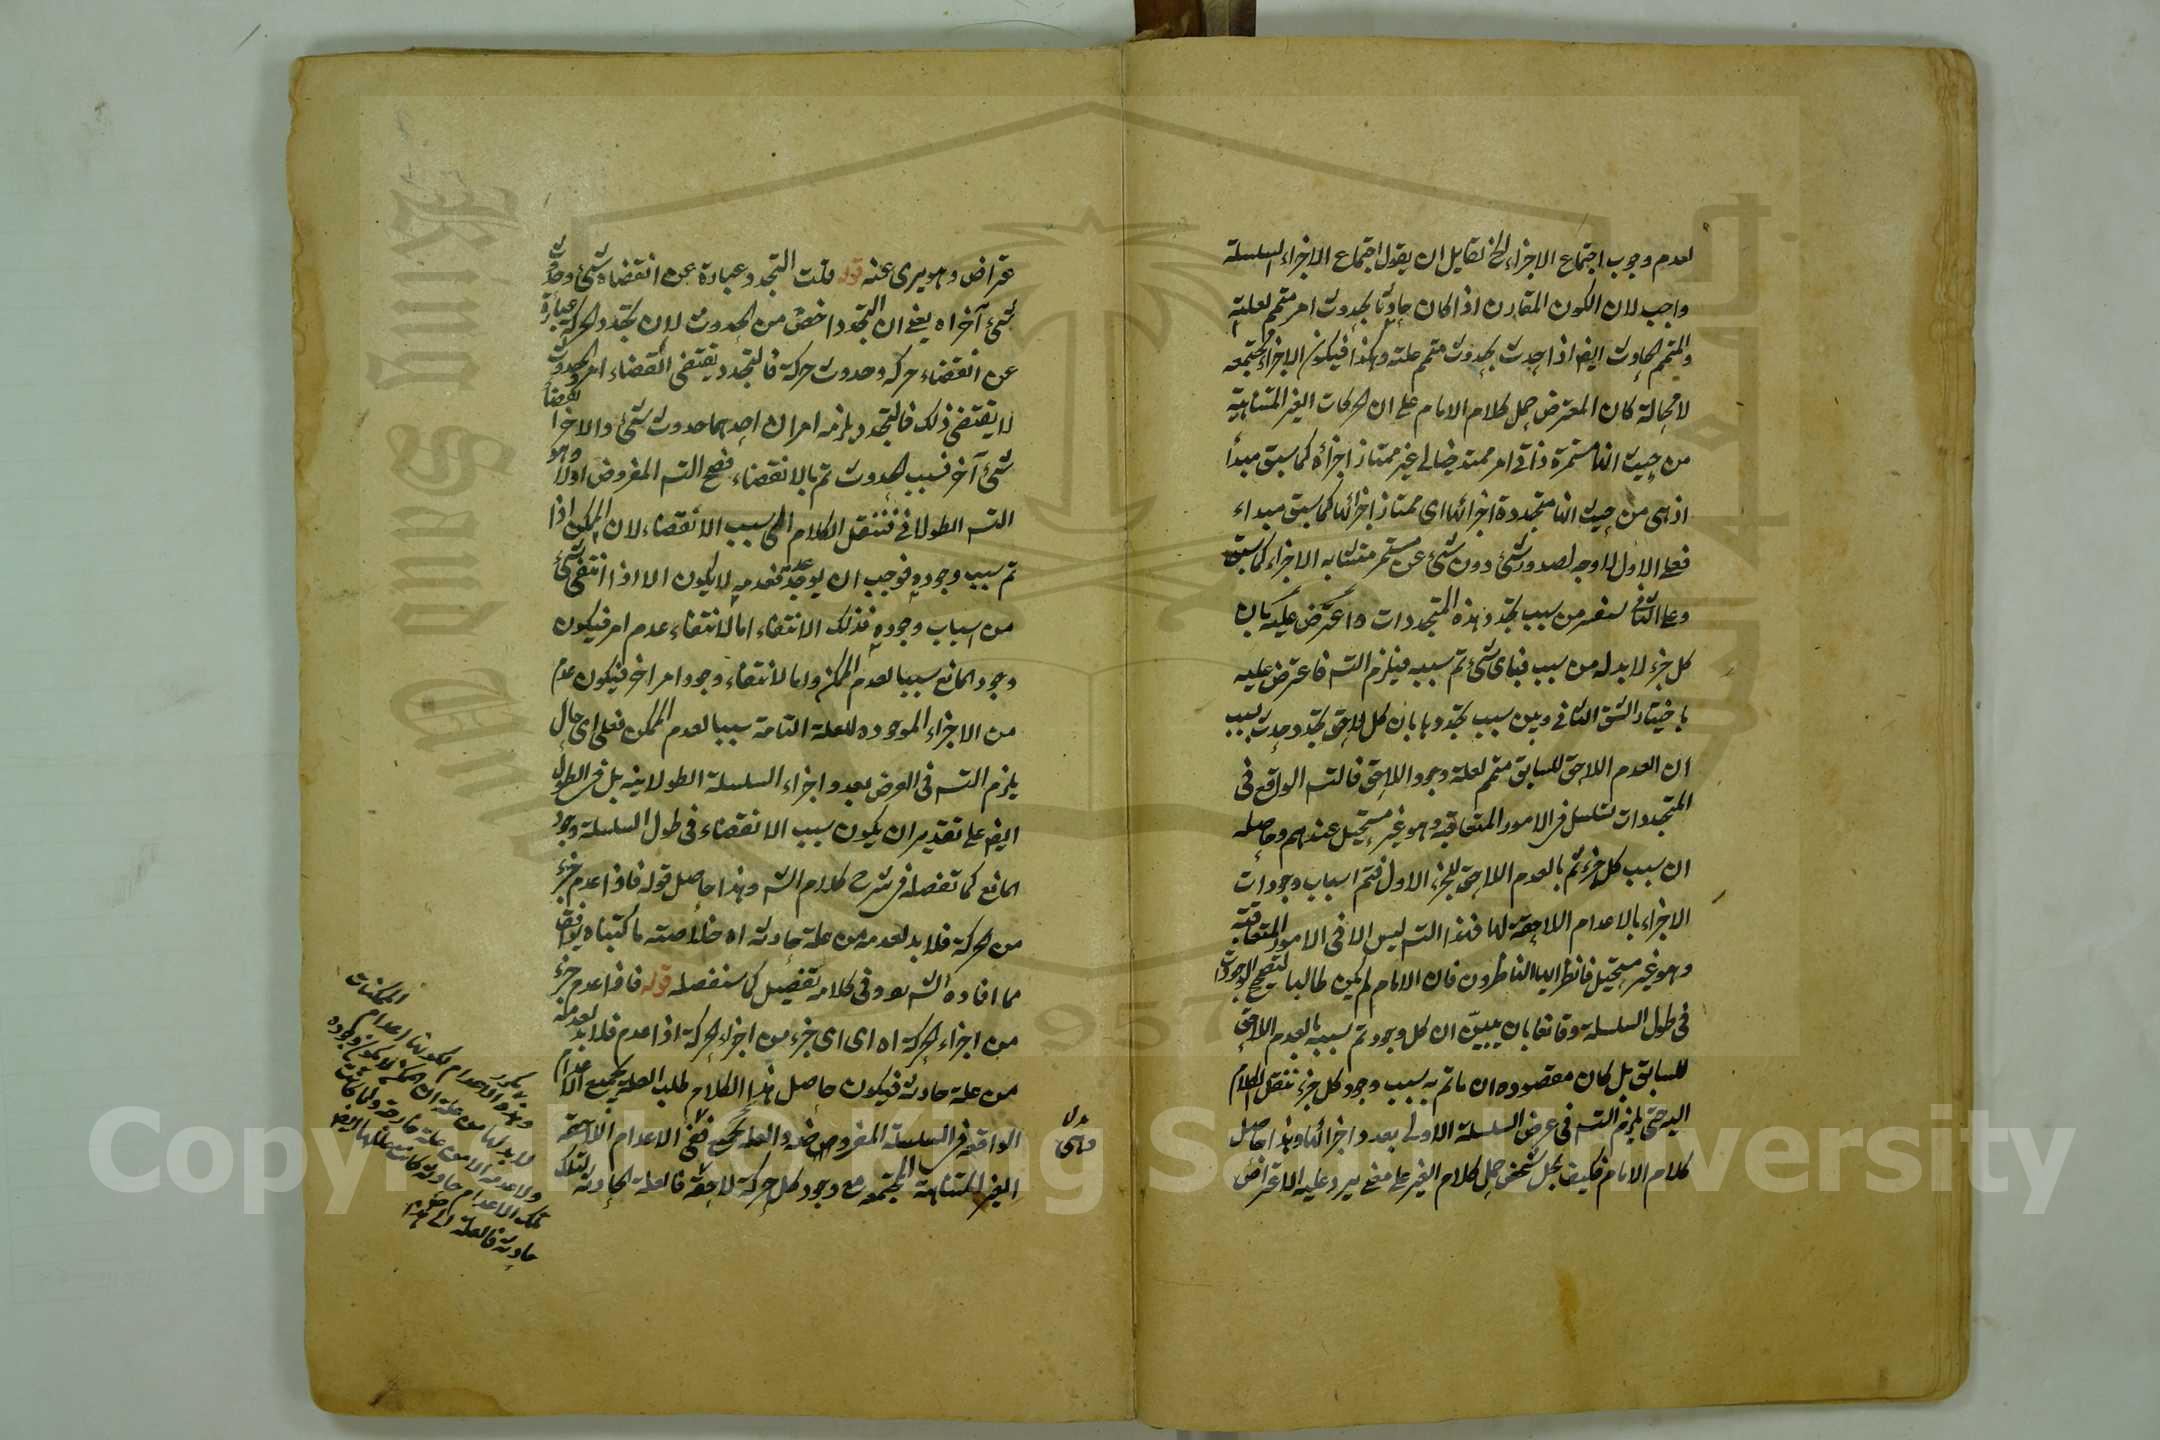 لعدم وجوب اجتماع الاجزاء الخ لقايل ان يقول اجتماع الاجزاء السلسلة
واجب لان الكون المقارن اذا كان حادثا بحدوث امر متمم لعلية
والمتمم الحادث ايضا اذا حدث بحدوث متمم علته وهكذا فيكون الاجزاء مجتمعه
لا محالة كان المعترض حمل كلام الامام على ان الحركات الغير المتناهية
من حيث انها مستمرة ذاتى امر ممتد خيالى غير ممتاز اجزائه كما سبق مبدأ
اذ هى من حيث انها متجددة اجزائها اى ممتاز اجزائها كما سبق مبداء
فعلى الاول لا وجه لصدور شئ دون شئ عن مستمر متشابه الاجزاء كما سبق
وعلى الثانى من سبب تجدد هذه المتجددات واعترض عليه بان
كل جزء لا بد له من سبب فباى شئ تم سببه فيلزم التسـ فاعترض عليه
باختيار الشق الثانى وبين سبب تجددها بان كل لاحق تجدد حدث بسبب
ان العدم اللاحق للسابق متمم لعلة وجود اللاحق فالتسـ الواقع فى
المتجددات تسلسل فى الامور المتعاقبه وهو غير مستحيل عندهم وحاصله
ان سبب كل جزء تم بالعدم اللاحق للجزء الاول فتم اسباب وجودات
الاجزاء بالاعدام اللاحقة لها فهذا التسـ ليس الا فى الامور المتعاقبة
وهو غير مستحيل فانظر ايها الناظرون فان الامام لم يكن طالبا لتصحيح الوجودات
فى طول السلسلة وقانعا بان يبيّن ان كل وجود تم سببه بالعدم اللاحق
للسابق بل كان مقصوده ان ما تم به سبب وجود كل جزء ننقل الكلام
اليه حتى يلزم التسـ فى عرض السلسلة الاولى بعدد اجزائها وهذا حاصل
كلام الامام فكيف يحل شخص حمل كلام الغير على معنى يرد عليه الاعتراض
عتراض وهو برى عنه قوله قلت التجدد عبارة عن انقضاء شئ وحدوث
شئ آخر اه يعنى ان التجدد اخص من الحدوث لان تجدد الحركة عبارة
عن انقضاء حركه وحدوث حركة فالتجدد يقتضى انقضاء امر والحدوث
لا يقتضى ذلك فالتجدد يلزمه امران احدهما حدوث شئ والاخر انقضاء
شئ آخر فسبب الحدوث تم بالانقضاء فصح التسـ المفروض اولا وهو
التسـ الطولانى فننقل الكلام الى سبب الانقضاء لان الممكن اذا
تم سبب وجوده فوجب ان يوجد فعدمه لا يكون الا اذا انتفى شئ
من اسباب وجوده فذلك الانتفاء اما لانتفاء عدم امر فيكون
وجود المانع سببا لعدم الممكن واما لانتفاء وجود امر اخر فيكون عدم
من الاجزاء الموجوده للعلة التامة سببا لعدم الممكن فعلى اى حال
يلزم التسـ فى العرض بعدد اجزاء السلسلة الطولانيه بل فى الطول
ايضا على تقدير ان يكون سبب الانقضاء فى طول السلسلة وجود
المانع كما تفصله فى شرح كلام الشـ وهذا حاصل قوله فاذا عدم جزء
من الحركة فلا بد لعدمه من علة حادثه اه خلاصته ما كتبناه يوافق
مما افاده الشـ وفى كلامه تفصيل كما سنفصله قوله فاذا عدم جزء
من اجزاء الحركة اه اى اى جزء من اجزاء الحركة اذا عدم فلا بد لعدمه
من علة حادثة فيكون حاصل هذا الكلام طلب العلة لجميع الاعدام
الواقعة فى السلسلة المفروض والعله لجميع الاعدام اللاحقة
الغير المتناهية المجتمعه مع وجود كل حركة لاحقة فالعلة الحادثة لتلك
الممكنات
وهذه الاعدام لكونها اعدام
لا بد لها من علة
ولا عدمه الا من علة
تلك الاعدام حادثة كانت علتها ايضا
حادثة فالعلة